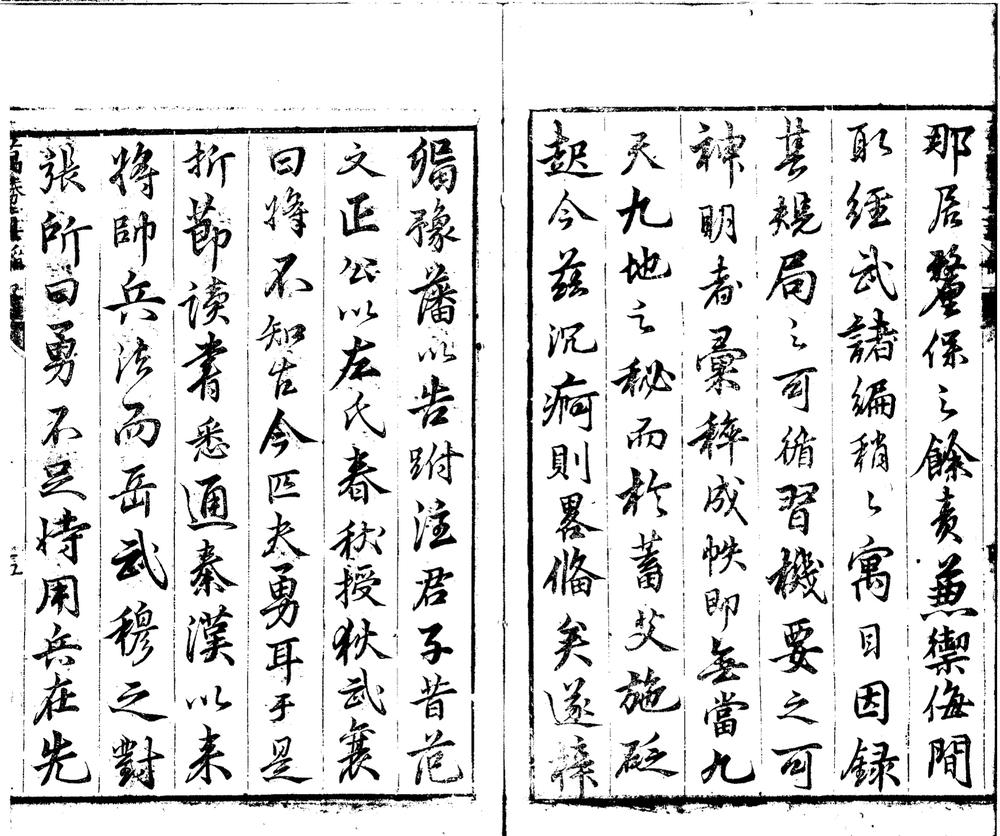 那居釐保之餘責兼禦侮間
取經武諸編稍々寓目因録
其規局之可循習機要之可
神明者彙稡成帙即無當九
天九地之秘而於蓄艾施砭
起今茲沉痾則畧備矣遂梓
豫藩以告跗注君子昔范
文正公以左氏春秋授狄武襄
曰將不知古今匹夫勇耳于是
折節读書悉通秦漢以来
將帥兵法而岳武穆之對
張所曰勇不足恃用兵在先